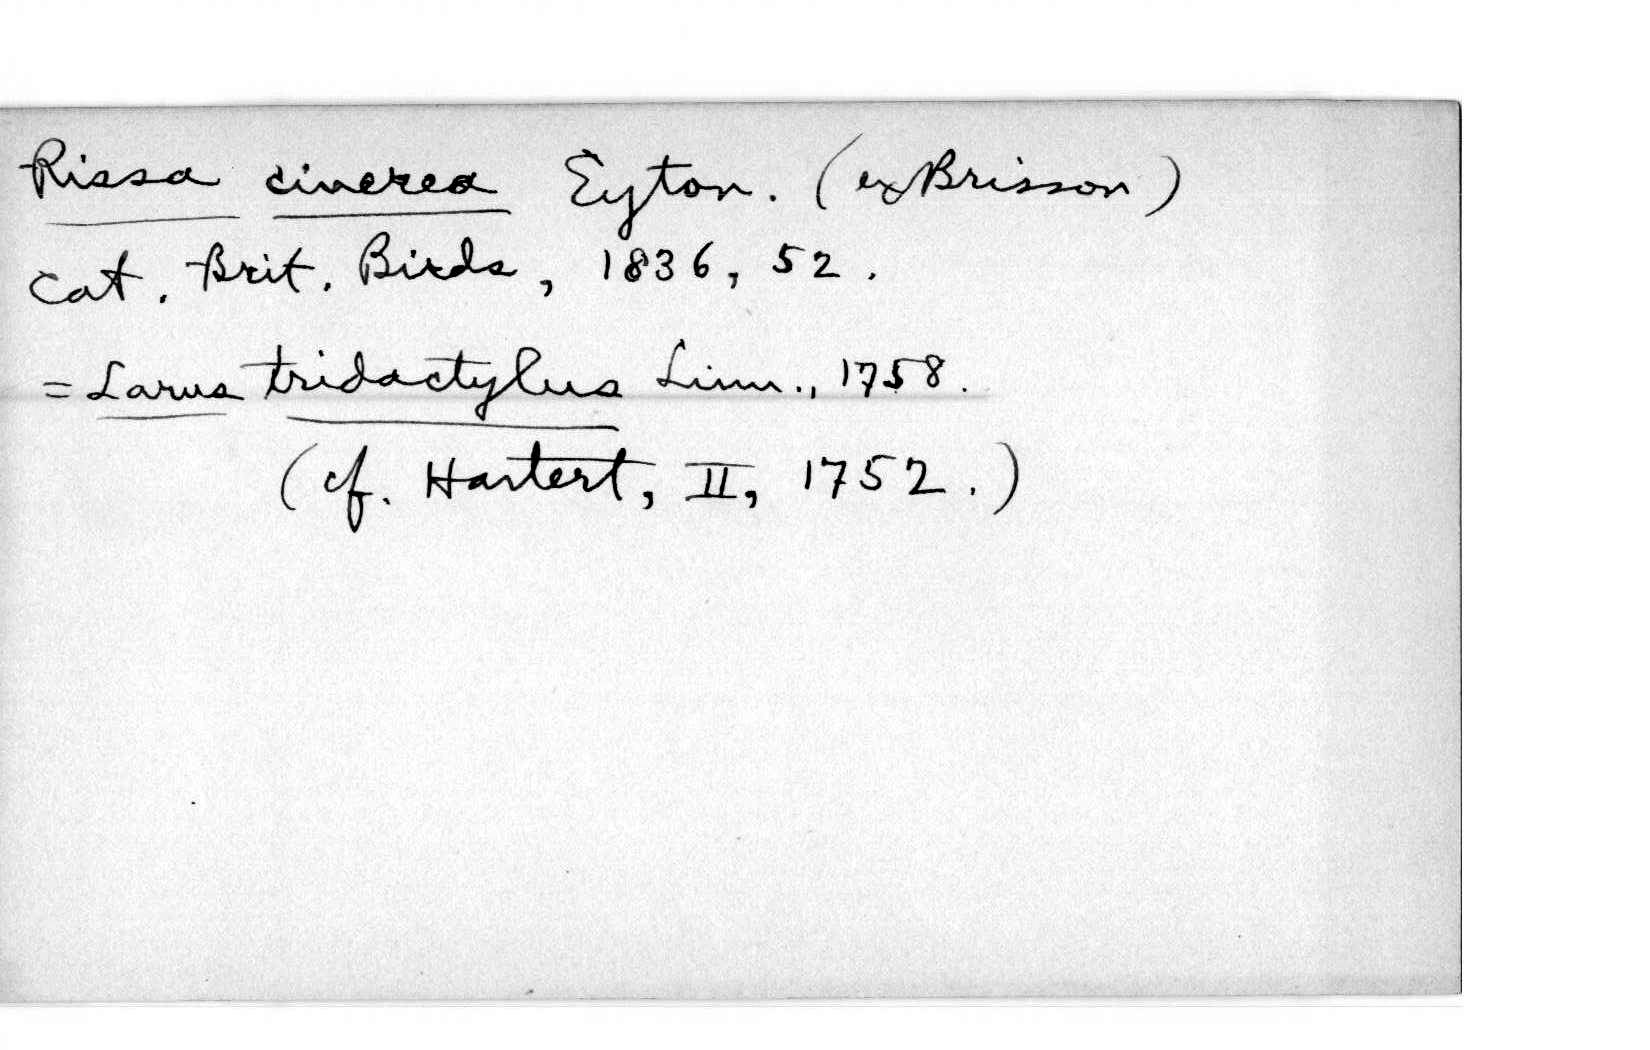 Rissa cinerea Eyton. (ex Brisson)
Cat. Brit. Birds, 1836, 52.
= Larus tridactylus Linn., 1758.
(cf. Hartert, II, 1752.)